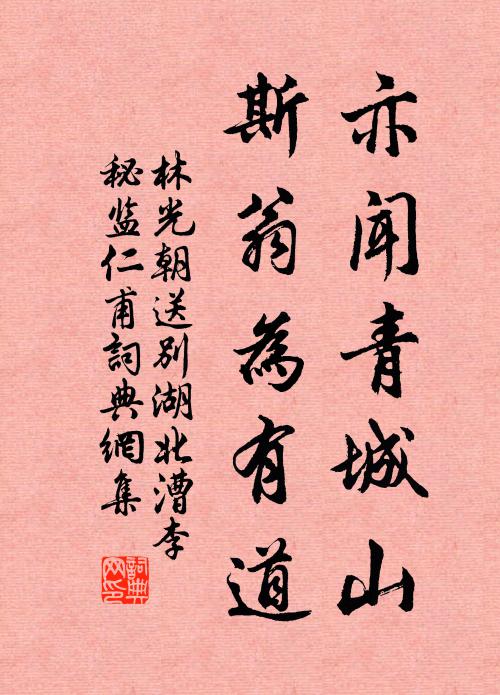 亦闻青城山
斯翁為有道
林光朝送别湖北漕李
秘监仁甫詞典網集
詞典网印